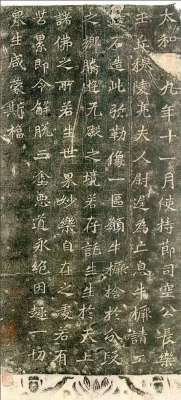 太和九年十一月使持節司空公長樂
王丘穆陵亮夫人尉遲為亡息牛橛請工
鏤石造此彌勒像一區願牛橛捨於分段
之鄉騰遊无礙之境若存託生生於天上
諸佛之所若生世界妙樂自在之處若有
苦累即令解脫三塗惡道永絕因趣一切
眾生咸蒙斯福